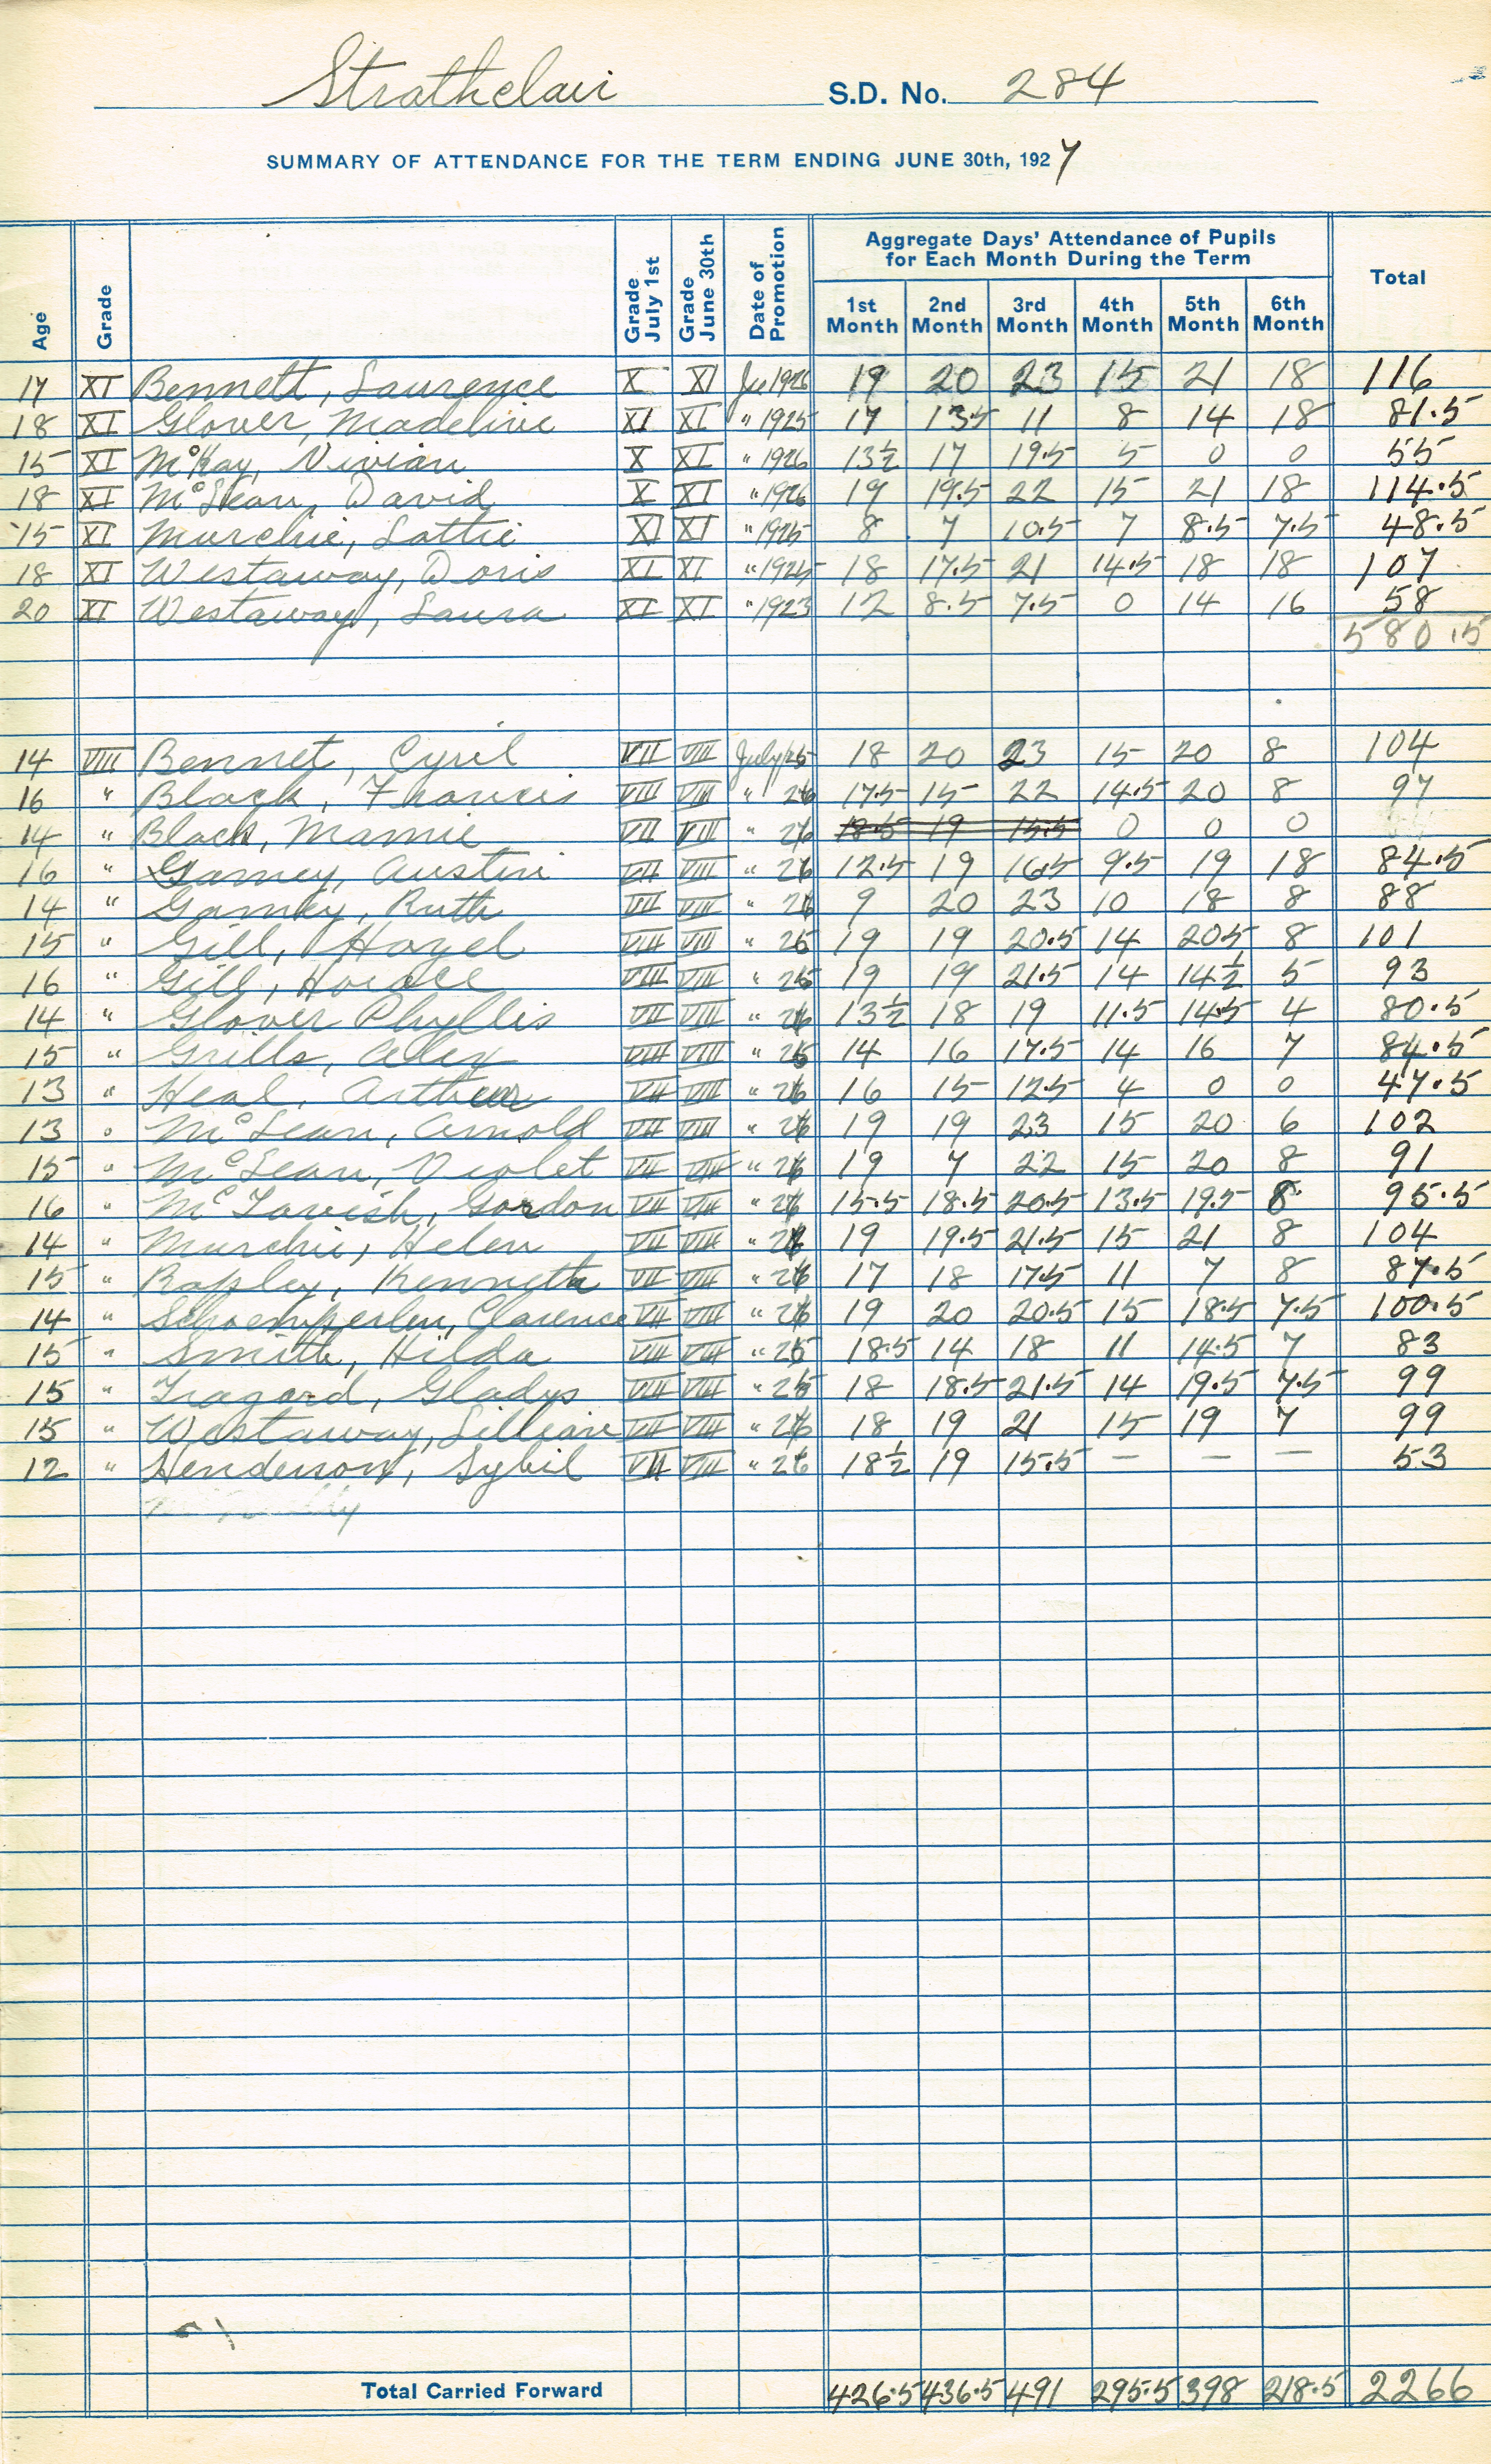 Strathclair S.D. No. 284
SUMMARY OF ATTENDANCE FOR THE TERM ENDING JUNE 30th, 1927
Age Grade Grade July 1st Grade June 30th Date of Promotion Aggregate Days' Attendance of Pupils for Each Month During the Term Total
1st Month 2nd Month 3rd Month 4th Month 5th Month 6th Month
17 XI Bennett, Laurence X XI 1926 19 20 23 15 21 18 116
18 XI Glover, Madeline XI XI " 1925 17 13.5 11 8 14 18 81.5
15 XI McKay, Vivian X XI " 1926 13½ 17 19.5 5 0 0 55
18 XI McLean, David X XI " 1926 19 19.5 22 15 21 18 114.5
15 XI Murchie, Lottie XI XI " 1925 8 7 10.5 7 8.5 7.5 48.5
18 XI Westaway, Doris XI XI " 1925 18 17.5 21 14.5 18 18 107
20 XI Westaway, Laura XI XI " 1923 12 8.5 7.5 0 14 16 58
580.5
14 VIII Bennet, Cyril VII VIII July 18 20 23 15 20 8 104
16 " Black, Francis VIII VIII " 26 17.5 15 22 14.5 20 8 97
14 " Black, Mamie VII VIII " 26 18.5 19 15.5 0 0 0
16 " Gamey, Austin VII VIII " 26 12.5 19 16.5 9.5 19 18 84.5
14 " Gamey, Ruth VII VIII " 26 9 20 23 10 18 8 88
15 " Gill, Hazel VIII VIII " 25 19 19 20.5 14 20.5 8 101
16 " Gill, Horace VIII VIII " 25 19 19 21.5 14 14½ 5 93
14 " Glover Phyllis VII VIII " 26 13½ 18 19 11.5 14.5 4 80.5
15 " Grills, Alex VIII VIII " 25 14 16 17.5 14 16 7 84.5
13 " Heal, Arthur VII VIII " 26 16 15 12.5 4 0 0 47.5
13 " McLean, Arnold VII VIII " 26 19 19 23 15 20 6 102
15 " McLean, Violet VII VIII " 26 19 7 22 15 20 8 91
16 " McTavish, Gordon VII VIII " 26 15.5 18.5 20.5 13.5 19.5 8 95.5
14 " Murchie, Helen VII VIII " 26 19 19.5 21.5 15 21 8 104
15 " Rapley, Kenneth VII VIII " 26 17 18 17.5 11 7 8 87.5
14 " Schoemperlen, Clarence VII VIII " 26 19 20 20.5 15 18.5 7.5 100.5
15 " Smith, Hilda VIII VIII " 25 18.5 14 18 11 14.5 7 83
15 " Tragord, Gladys VIII VIII " 25 18 18.5 21.5 14 19.5 7.5 99
15 " Westaway, Lillian VII VIII " 26 18 19 21 15 19 7 99
12 " Henderson, Sybil VII VIII " 26 18½ 19 15.5 — — — 53
Total Carried Forward 426.5 436.5 491 295.5 398 218.5 2266